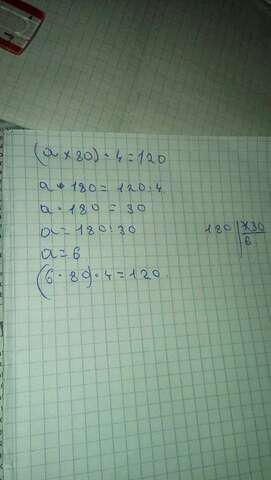 (a × 80) · 4 = 120
a · 180 = 120 : 4
a · 180 = 30
a = 180 : 30
a = 6
(6 · 80) · 4 = 120
180 | 30
6